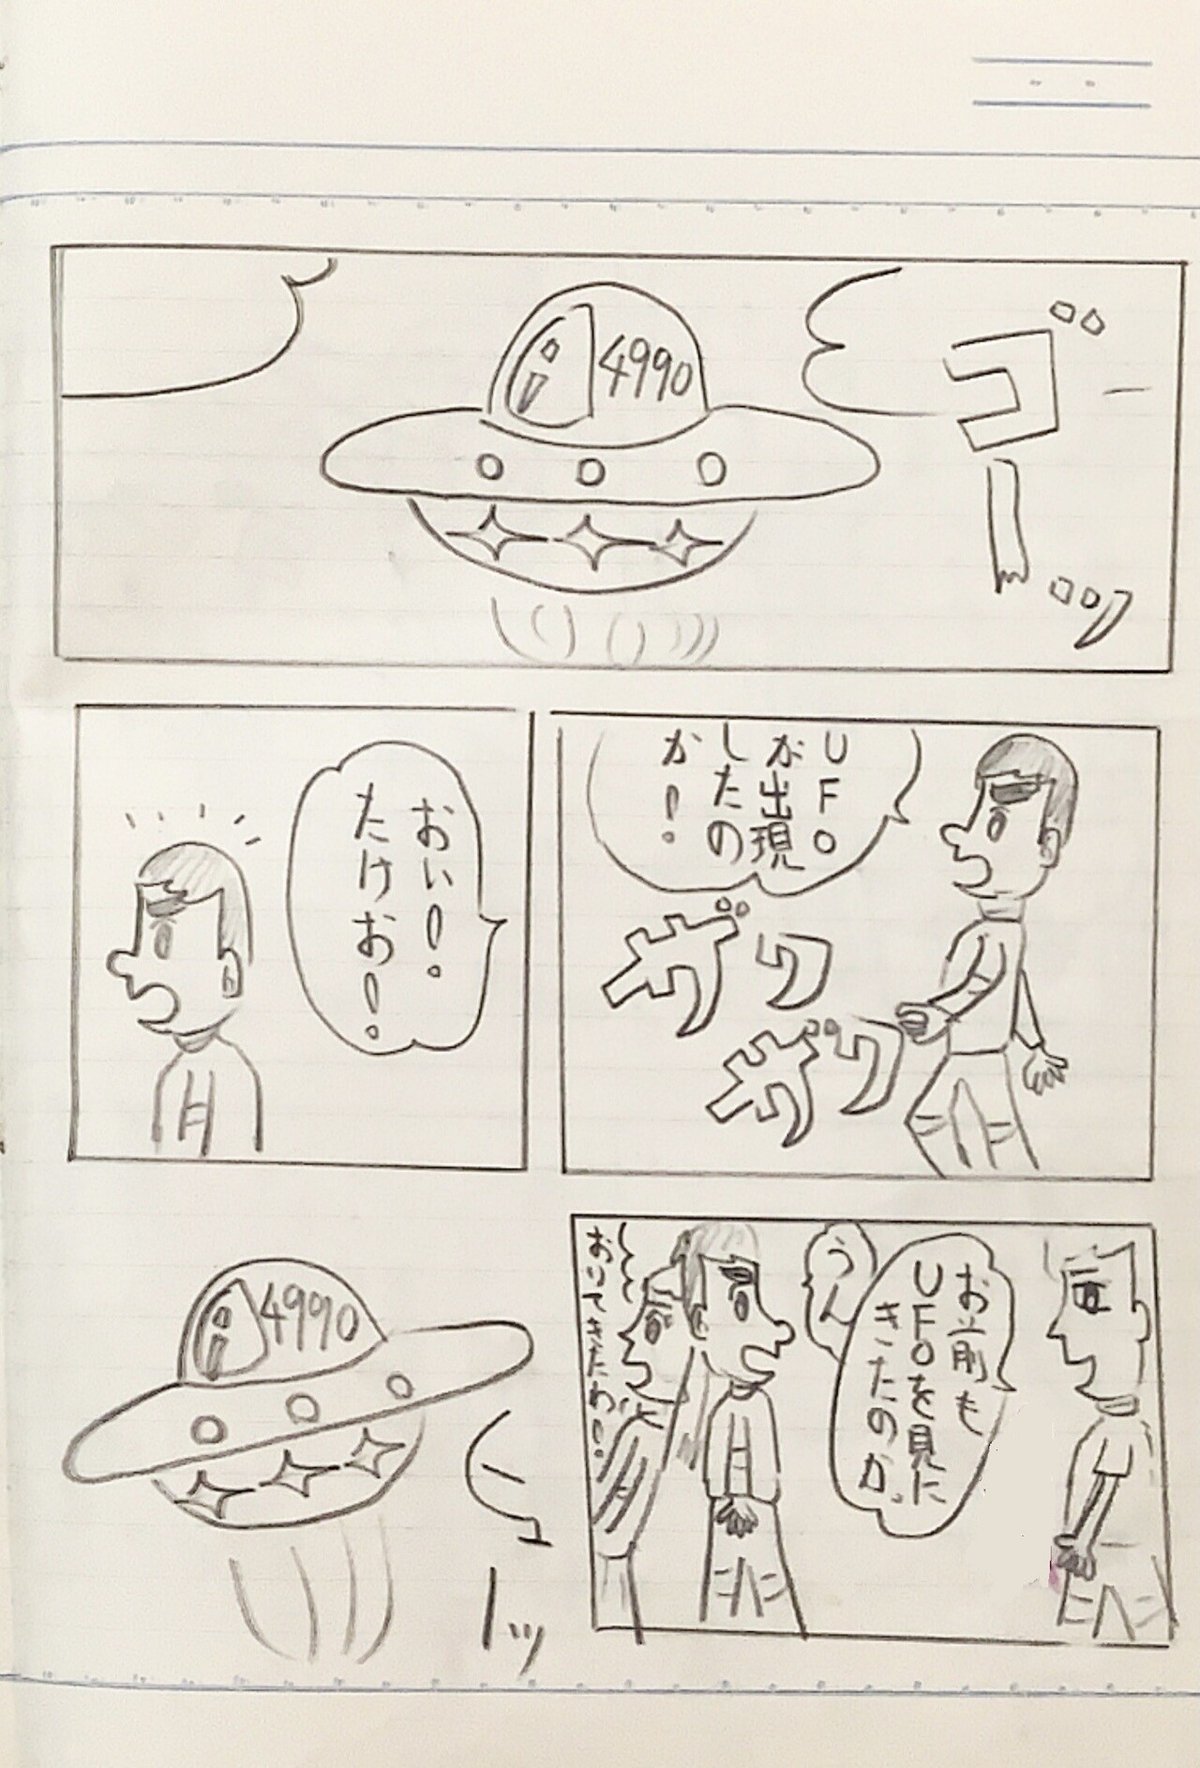 ゴーッ
4990
UFO
が出現
したの
か!
ザワ
ザワ
おい!
たけお!
お前も
UFOを見に
きたのか。
うん
おりてきたわ!
4990
ヒューッ